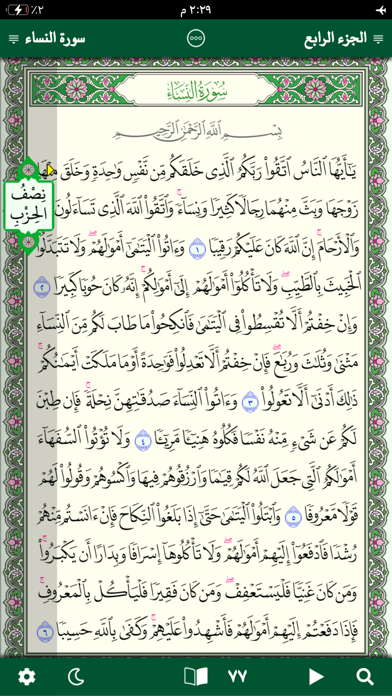 ٪٢ ٢:٢٩ م
الجزء الرابع
سورة النساء
سُورَةُ النِّسَاءِ
بِسْمِ ٱللَّهِ ٱلرَّحْمَٰنِ ٱلرَّحِيمِ
يَٰٓأَيُّهَا ٱلنَّاسُ ٱتَّقُوا۟ رَبَّكُمُ ٱلَّذِى خَلَقَكُم مِّن نَّفْسٍ وَٰحِدَةٍ وَخَلَقَ مِنْهَا
زَوْجَهَا وَبَثَّ مِنْهُمَا رِجَالًا كَثِيرًا وَنِسَآءً ۚ وَٱتَّقُوا۟ ٱللَّهَ ٱلَّذِى تَسَآءَلُونَ بِهِۦ
وَٱلْأَرْحَامَ ۚ إِنَّ ٱللَّهَ كَانَ عَلَيْكُمْ رَقِيبًا ١ وَءَاتُوا۟ ٱلْيَتَٰمَىٰٓ أَمْوَٰلَهُمْ ۖ وَلَا تَتَبَدَّلُوا۟
ٱلْخَبِيثَ بِٱلطَّيِّبِ ۖ وَلَا تَأْكُلُوٓا۟ أَمْوَٰلَهُمْ إِلَىٰٓ أَمْوَٰلِكُمْ ۚ إِنَّهُۥ كَانَ حُوبًا كَبِيرًا ٢
وَإِنْ خِفْتُمْ أَلَّا تُقْسِطُوا۟ فِى ٱلْيَتَٰمَىٰ فَٱنكِحُوا۟ مَا طَابَ لَكُم مِّنَ ٱلنِّسَآءِ
مَثْنَىٰ وَثُلَٰثَ وَرُبَٰعَ ۖ فَإِنْ خِفْتُمْ أَلَّا تَعْدِلُوا۟ فَوَٰحِدَةً أَوْ مَا مَلَكَتْ أَيْمَٰنُكُمْ ۚ
ذَٰلِكَ أَدْنَىٰٓ أَلَّا تَعُولُوا۟ ٣ وَءَاتُوا۟ ٱلنِّسَآءَ صَدُقَٰتِهِنَّ نِحْلَةً ۚ فَإِن طِبْنَ
لَكُمْ عَن شَىْءٍ مِّنْهُ نَفْسًا فَكُلُوهُ هَنِيٓـًٔا مَّرِيٓـًٔا ٤ وَلَا تُؤْتُوا۟ ٱلسُّفَهَآءَ
أَمْوَٰلَكُمُ ٱلَّتِى جَعَلَ ٱللَّهُ لَكُمْ قِيَٰمًا وَٱرْزُقُوهُمْ فِيهَا وَٱكْسُوهُمْ وَقُولُوا۟ لَهُمْ
قَوْلًا مَّعْرُوفًا ٥ وَٱبْتَلُوا۟ ٱلْيَتَٰمَىٰ حَتَّىٰٓ إِذَا بَلَغُوا۟ ٱلنِّكَاحَ فَإِنْ ءَانَسْتُم مِّنْهُمْ
رُشْدًا فَٱدْفَعُوٓا۟ إِلَيْهِمْ أَمْوَٰلَهُمْ ۖ وَلَا تَأْكُلُوهَآ إِسْرَافًا وَبِدَارًا أَن يَكْبَرُوا۟ ۚ
وَمَن كَانَ غَنِيًّا فَلْيَسْتَعْفِفْ ۖ وَمَن كَانَ فَقِيرًا فَلْيَأْكُلْ بِٱلْمَعْرُوفِ ۚ
فَإِذَا دَفَعْتُمْ إِلَيْهِمْ أَمْوَٰلَهُمْ فَأَشْهِدُوا۟ عَلَيْهِمْ ۚ وَكَفَىٰ بِٱللَّهِ حَسِيبًا ٦
نِصْفُ
الحِزْبِ
٧٧